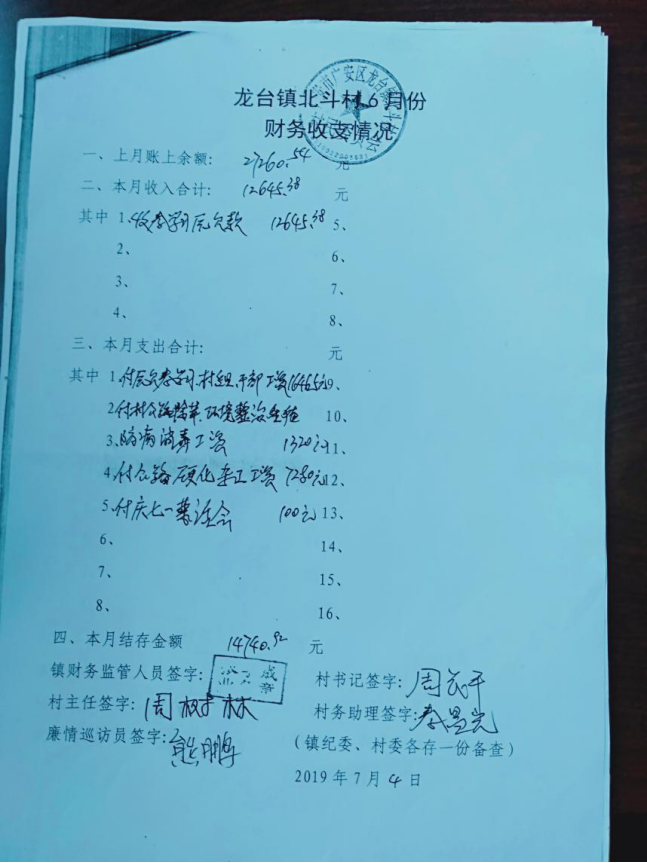 龙台镇北斗村 6 月份
财务收支情况
一、上月账上余额: 27260.54 元
二、本月收入合计: 12645.38 元
其中 1、收 欠款 12645.38 5、
2、 6、
3、 7、
4、 8、
三、本月支出合计: 元
其中 1、付 村组干部工资16465元9、
2、付村公路除草、环境整治 10、
3、防病消毒工资 1320元11、
4、付公路硬化 工资 7280元12、
5、付庆七一 会 100元 13、
6、 14、
7、 15、
8、 16、
四、本月结存金额 14740.92 元
镇财务监管人员签字: 村书记签字:周 平
村主任签字:周树林 村务助理签字:秦昱光
廉情巡访员签字:熊鹏 (镇纪委、村委各存一份备查)
2019 年 7 月 4 日